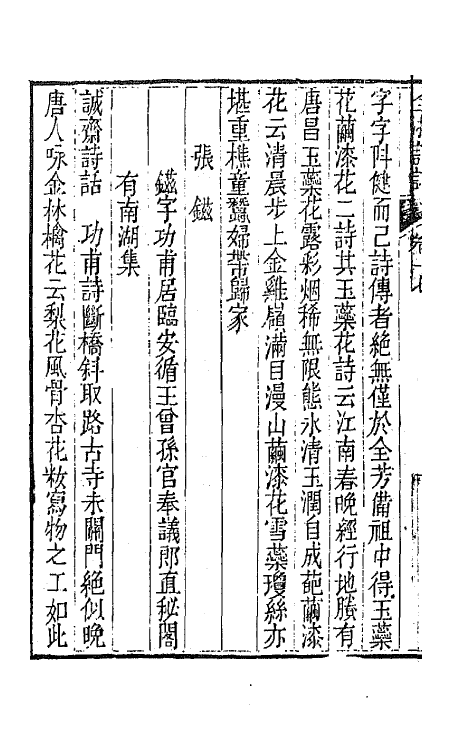 字字斟健而已詩傳者絶無僅於全芳備祖中得玉蘂
花繭漆花二詩其玉蘂花詩云江南春晚經行地賸有
唐昌玉蘂花露彩烟稀無限態氷清玉潤自成葩繭漆
花云清晨步上金雞嶺滿目漫山繭漆花雪蘂瓊絲亦
堪重樵童蠶婦帶歸家
張鎡
鎡字功甫居臨安循王曾孫官奉議郎直秘閣
有南湖集
誠齋詩話　功甫詩斷橋斜取路古寺未關門絶似晚
唐人咏金林檎花云梨花風骨杏花粧寫物之工如此